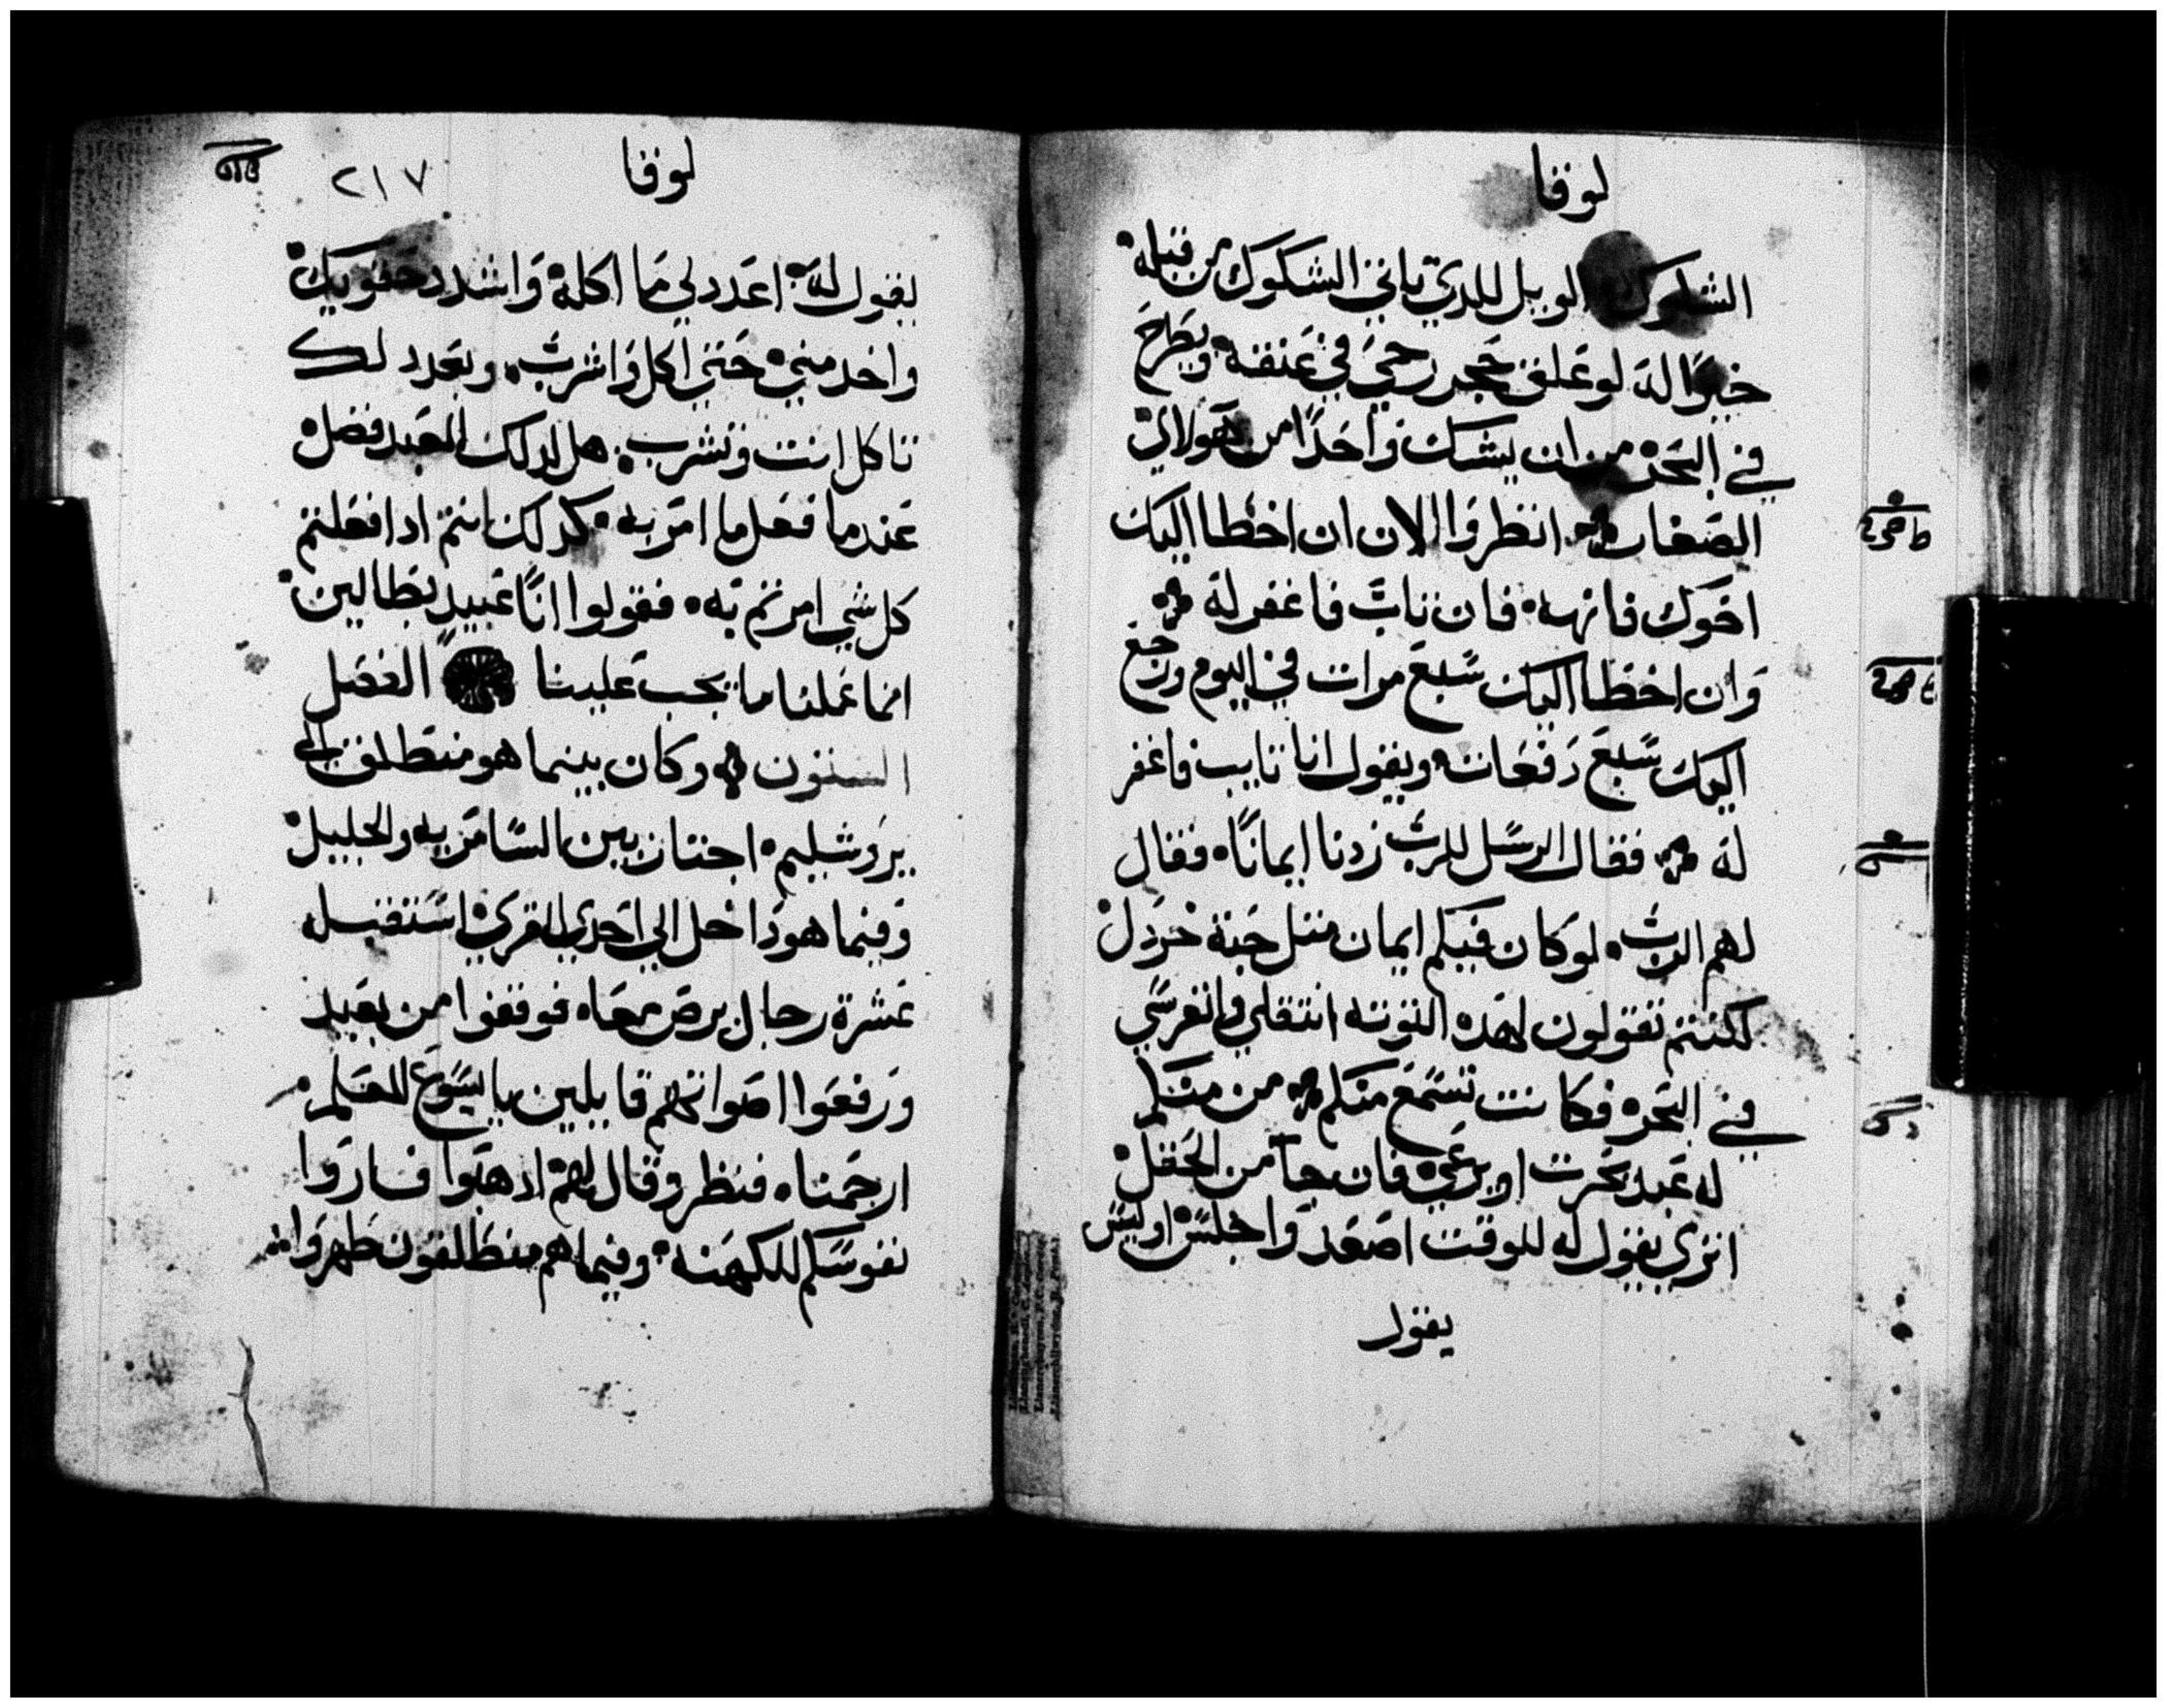 لوقا
الشكوك الويل للدي ياتي الشكوك من قبله
خيرًا له لو علق حجر رحي في عنقه ويطرح
في البحر من ان يشكك واحدًا من هولاي
الصغار انظروا الان ان اخطا اليك
اخوك فانهه فان تاب فاغفر له
وان اخطا اليك سبع مرات في اليوم ورجع
اليك سبع دفعات ويقول انا تايب فاغفر
له فقال الرسل للرب زدنا ايمانًا فقال
لهم الرب لو كان فيكم ايمان متل حبة خردل
لكنتم تقولون لهده التوته انتقلي وانغرسي
في البحر فكانت تسمع منكم من منكم
له عبد يحرت او يرعي فان جا من الحقل
اتري يقول له للوقت اصعد واجلس اوليس
يقول
لوقا
٢١٧
يقول له اعدد لي ما اكله واشدد حقويك
واخدمني حتي اكل واشرب وبعد دلك
تاكل انت وتشرب هل لدلك العبد فضل
عندما فعل ما امر به كدلك انتم ادا فعلتم
كل شي امرتم به فقولوا انًا عبيد بطالين
انما عملنا ما يجب علينا الفصل
الستون وكان بينما هو منطلق الي
يروشليم اجتاز بين السامريه والجليل
وفيما هو داخل الي احدي القري استقبله
عشرة رجال برص معاه فوقفوا من بعيد
ورفعوا اصواتهم قايلين يا يسوع المعلم
ارحمناه فنظر وقال لهم ادهبوا فاروا
نفوسكم للكهنه وفيما هم منطلقون طهروا